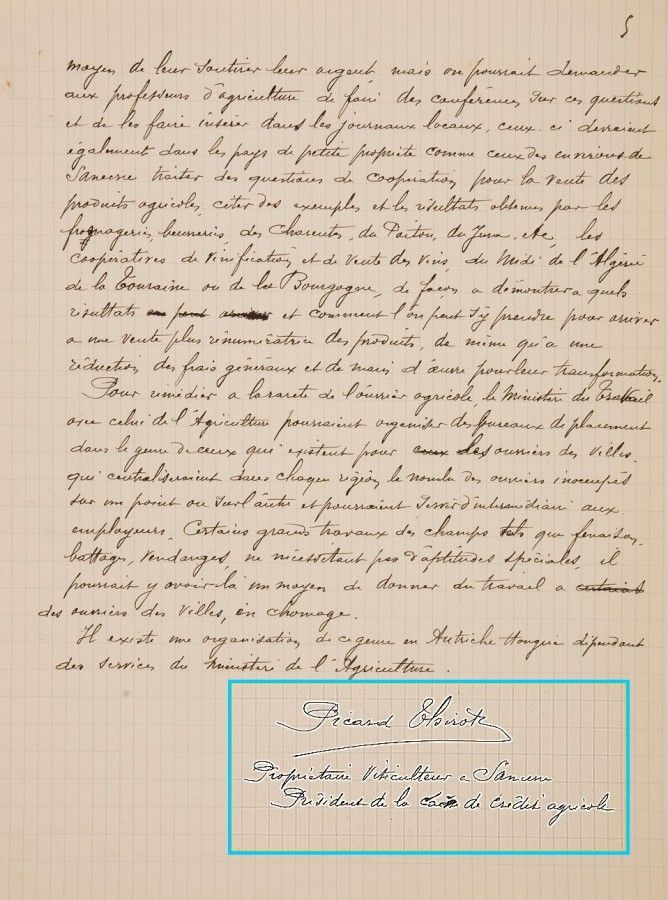 5
moyen de leur soutirer leur argent, mais on pourrait demander
aux professeurs d'agriculture de faire des conférences sur ces questions
et de les faire insérer dans les journaux locaux, ceux-ci devraient
également dans les pays de petite propriété comme ceux des environs de
Sancerre traiter des questions de coopération pour la vente des
produits agricoles, citer des exemples et les résultats obtenus par les
fromageries, beurreries, des Charentes, du Poitou, du Jura, etc, les
coopératives de vinification et de vente des vins, du Midi de l'Algérie
de la Touraine ou de la Bourgogne, de façon a démontrer a quels
résultats et comment l'on peut s'y prendre pour arriver
a une vente plus rénumératrice des produits, de même qu'a une
réduction des frais généraux et de main d'œuvre pour leur transformation.
Pour remédier a la rareté de l'ouvrier agricole, le Ministère du Travail
avec celui de l'Agriculture pourraient organiser des bureaux de placement
dans le genre de ceux qui existent pour ceux des ouvriers des Villes,
qui centraliseraient dans chaque région le nombre des ouvriers inoccupés
sur un point ou sur l'autre et pourraient servir d'intermédiaire aux
employeurs. Certains grands travaux des champs tels que fenaison,
battages, vendanges, ne nécessitant pas d'aptitudes spéciales, il
pourrait y avoir là un moyen de donner du travail a certains
des ouvriers des Villes, en chomage.
Il existe une organisation de ce genre en Autriche Hongrie dépendant
des services du ministère de l'Agriculture.
Picard Thirot
Propriétaire Viticulteur a Sancerre
Président de la de Crédit agricole